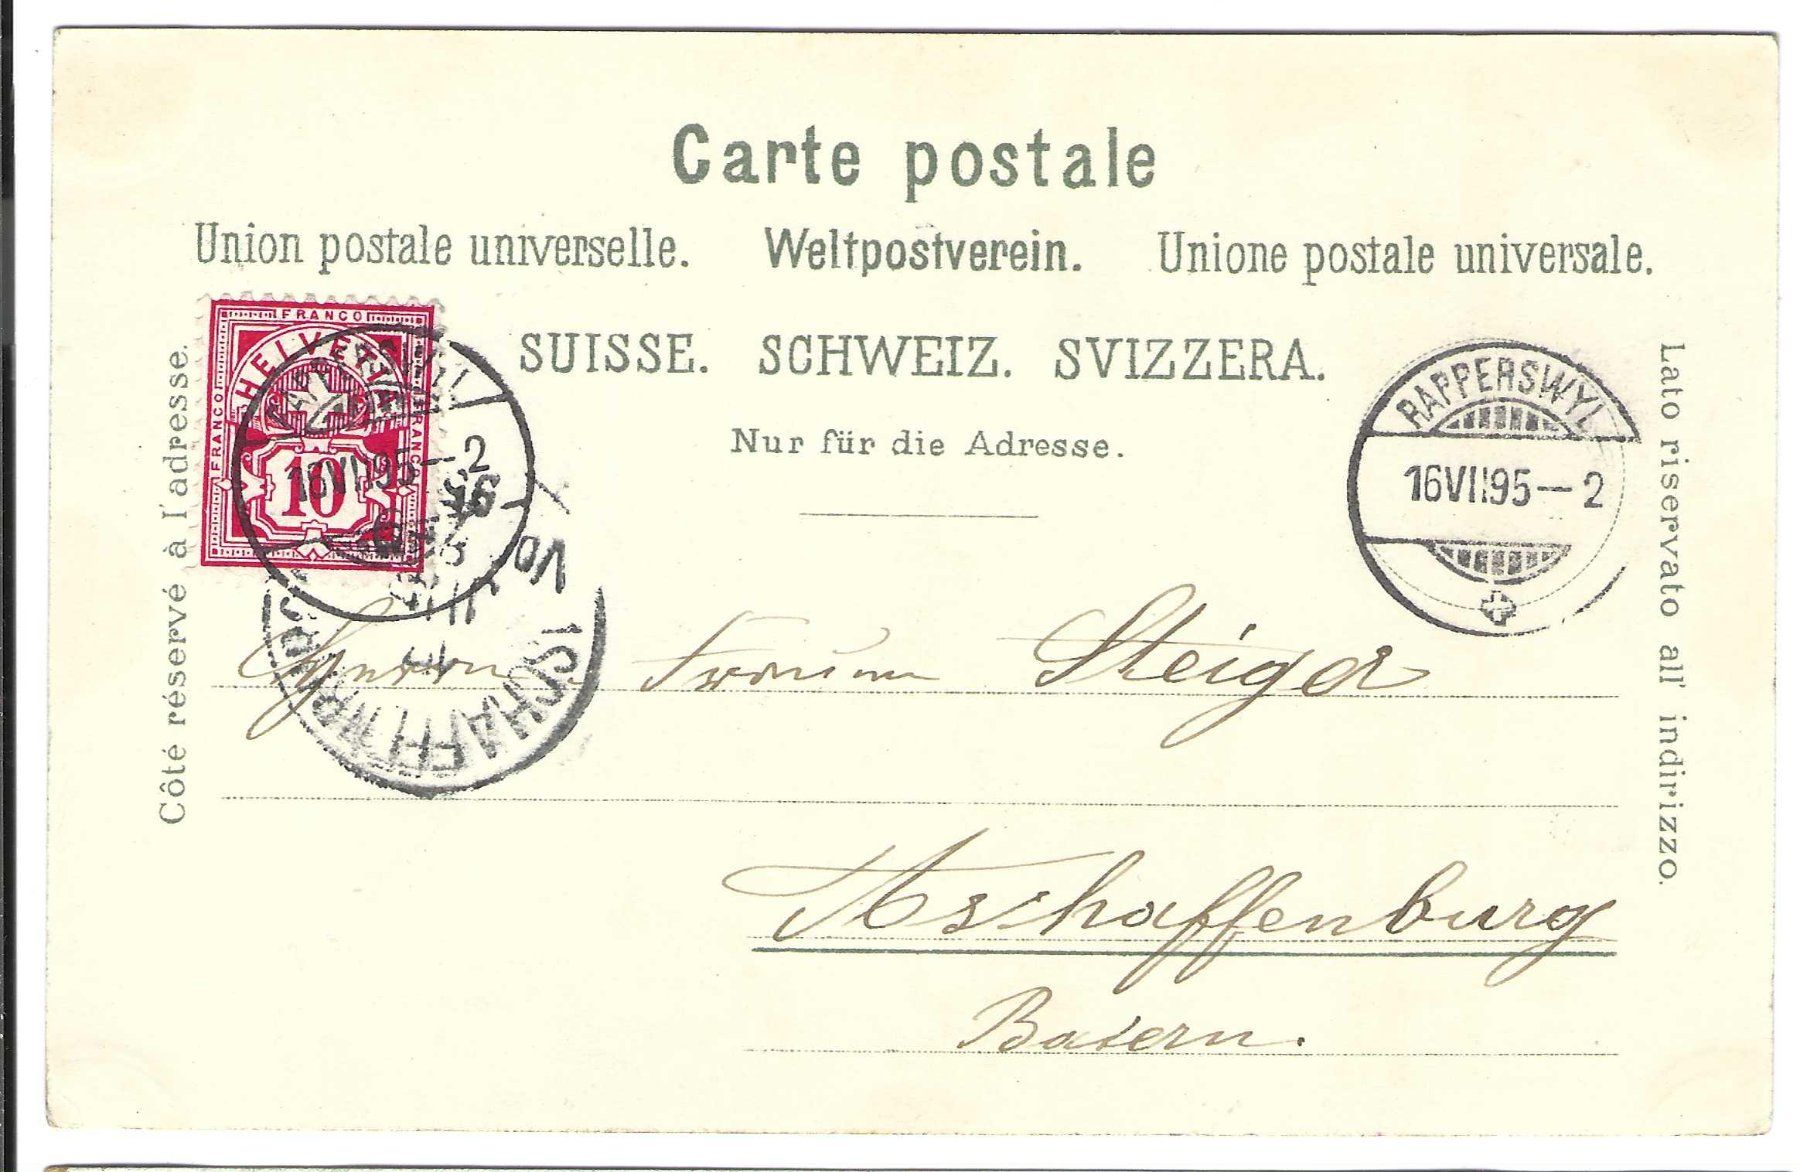 Carte postale
Union postale universelle. Weltpostverein. Unione postale universale.
SUISSE. SCHWEIZ. SVIZZERA.
Nur für die Adresse.
Côté réservé à l'adresse.
Lato riservato all' indirizzo.
FRANCO
FRANCO
FRANCO
HELVETIA
10
RAPPERSWYL
16VII95–2
RAPPERSWYL
16VII95–2
Steiger
Aschaffenburg
Baiern.